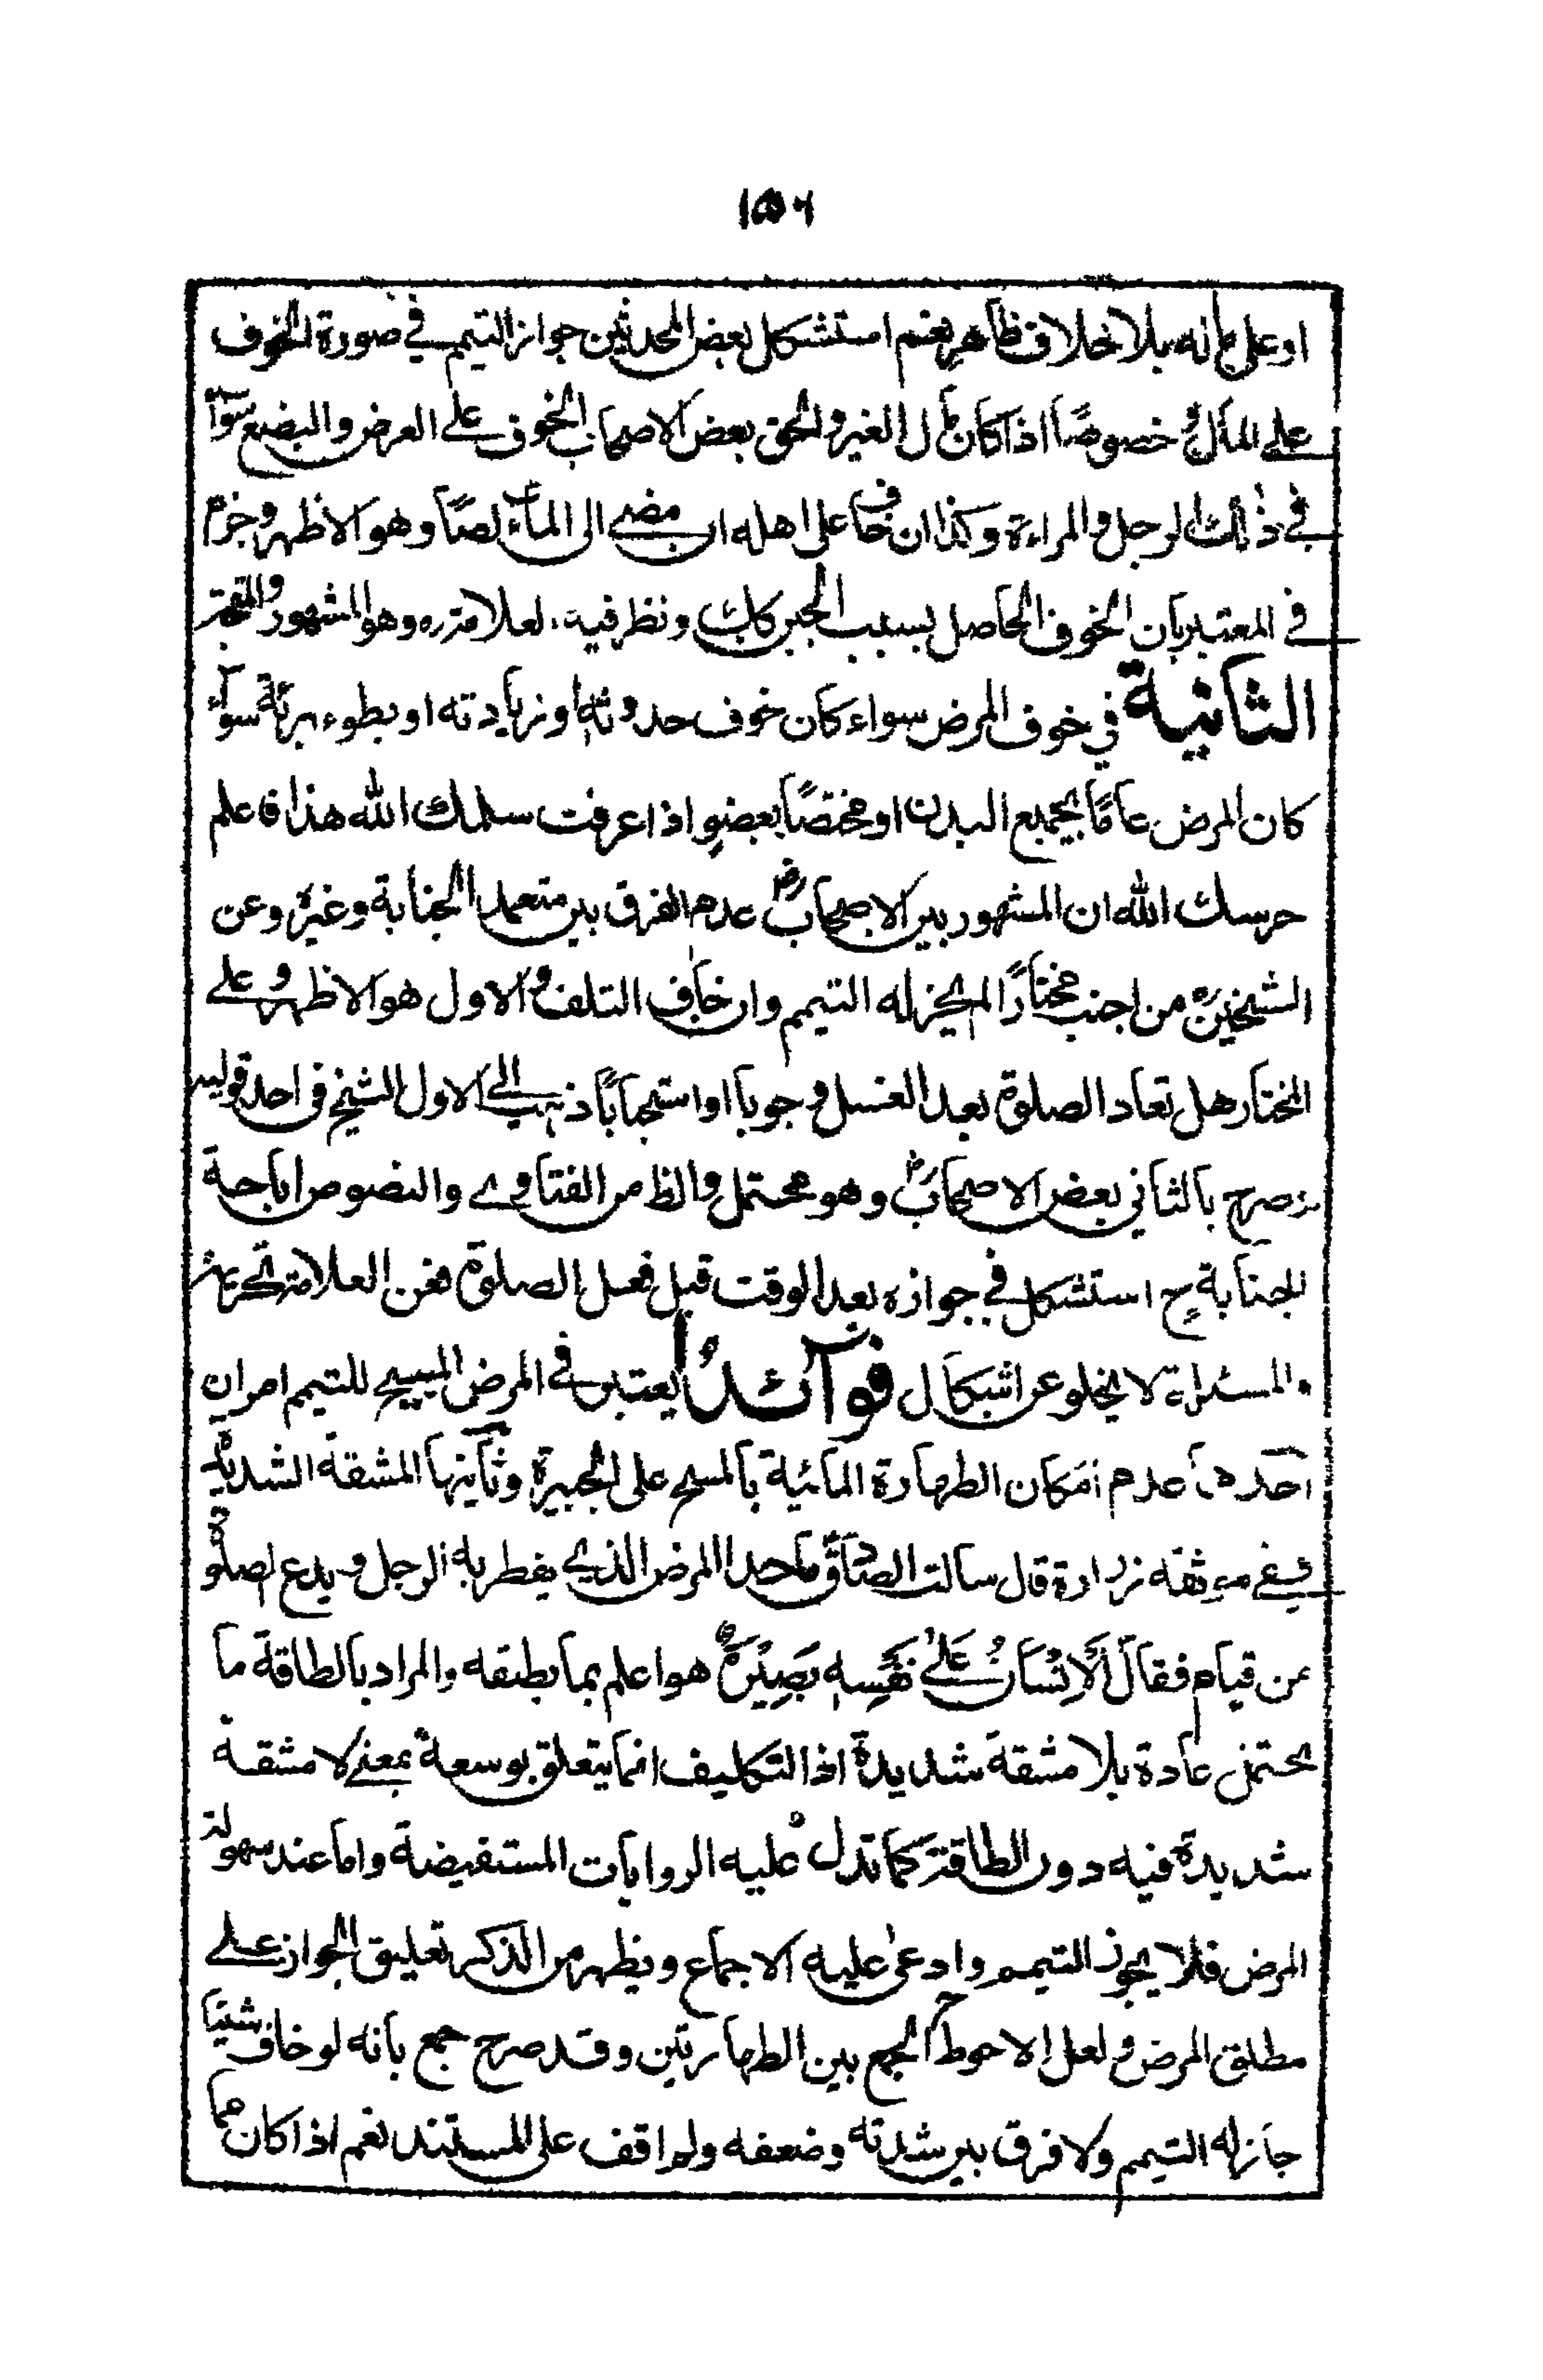 ١٥٦
او على مانه بلا خلاف ظاهر نعم استشكل بعض المحدثين جواز التيمم في صورة الخوف
على المال خصوصًا اذا كان مال الغير والحق بعض الاصحاب الخوف على العرض والبضع سواء
في ذلك الرجل والمراءة وكذا ان خاف على اهله ان مضى الى الماء لصًا وهو الاظهر وجزم
في المعتبر بان الخوف الحاصل بسبب الجبن كاف ونظر فيه العلامة ره وهو المشهور
الثانية في خوف المرض سواء كان خوف حدوثه او زيادته او بطوء برئه سواء
كان المرض عامًا بجميع البدن او مختصًا بعضوٍ اذا عرفت سلمك الله هذا فاعلم
حرسك الله ان المشهور بين الاصحاب رض عدم الفرق بين متعمد الجنابة وغيره وعن
الشيخين ره من اجنب مختارًا لم يجز له التيمم وان خاف التلف والاول هو الاظهر وعلى
المختار هل تعاد الصلوة بعد الغسل وجوبا او استحبابًا ذهب الى الاول الشيخ في احد قوليه
وصرح بالثاني بعض الاصحاب رض وهو محتمل والظ من الفتاوى والنصوص اباحة
الجنابة ح استشكل في جوازه بعد الوقت قبل فعل الصلوة فعن العلامة تحريمه
والمسئلة لا يخلو عن اشكال فوائد ا يعتبر في المرض المبيح للتيمم امران
احدهما عدم امكان الطهارة المائية بالمسح على الجبيرة وثانيها المشقة الشديدة
ففي موثقة زرارة قال سالت الصادق ما حد المرض الذي يفطر به الرجل ويدع الصلوة
من قيام فقال اَلْاِنْسَانُ عَلٰى نَفْسِهٖ بَصِيْرَةٌ هو اعلم بما يطيقه والمراد بالطاقة ما
يحتمل عادة بلا مشقة شديدة اذ التكليف انما يتعلق بوسعة بمعنى لا مشقة
شديدة فيه دون الطاقة كما تدل عليه الروايات المستفيضة واما عند سهولة
المرض فلا يجوز التيمم وادعى عليه الاجماع ويظهر من الذكرى تعليق الجواز على
مطلق المرض ولعل الاحوط ح الجمع بين الطهارتين وقد صرح جمع بانه لو خاف شينًا
جاز له التيمم ولا فرق بين شدته وضعفه ولم اقف على المستند نعم اذا كان مما